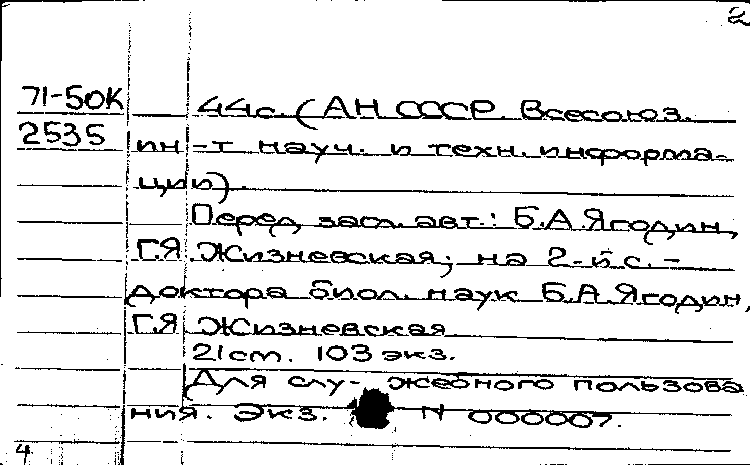 2
71-50К 44с. (АН СССР. Всесоюз.
2535 ин-т науч. и техн. информа-
ции).
Перед загл. авт.: Б.А.Ягодин,
Г.Я.Жизневская; на 2-й с. -
доктора биол. наук Б.А.Ягодин,
Г.Я.Жизневская
21 см. 103 экз.
(Для слу- жебного пользова
ния. Экз. N 000007.
4